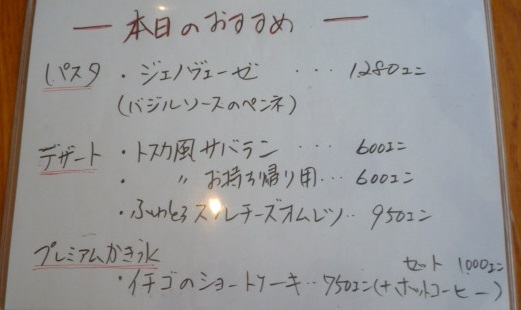 — 本日のおすすめ —
パスタ・ジェノヴェーゼ ・・・ 1280エン
(バジルソースのペンネ)
デザート・トスカ風サバラン ・・・ 600エン
・ 〃 お持ち帰り用・・・600エン
・ふわとろスフレチーズオムレツ・・950エン
プレミアムかき氷
セット 1000エン
・イチゴのショートケーキ・・750エン(+ホットコーヒー)